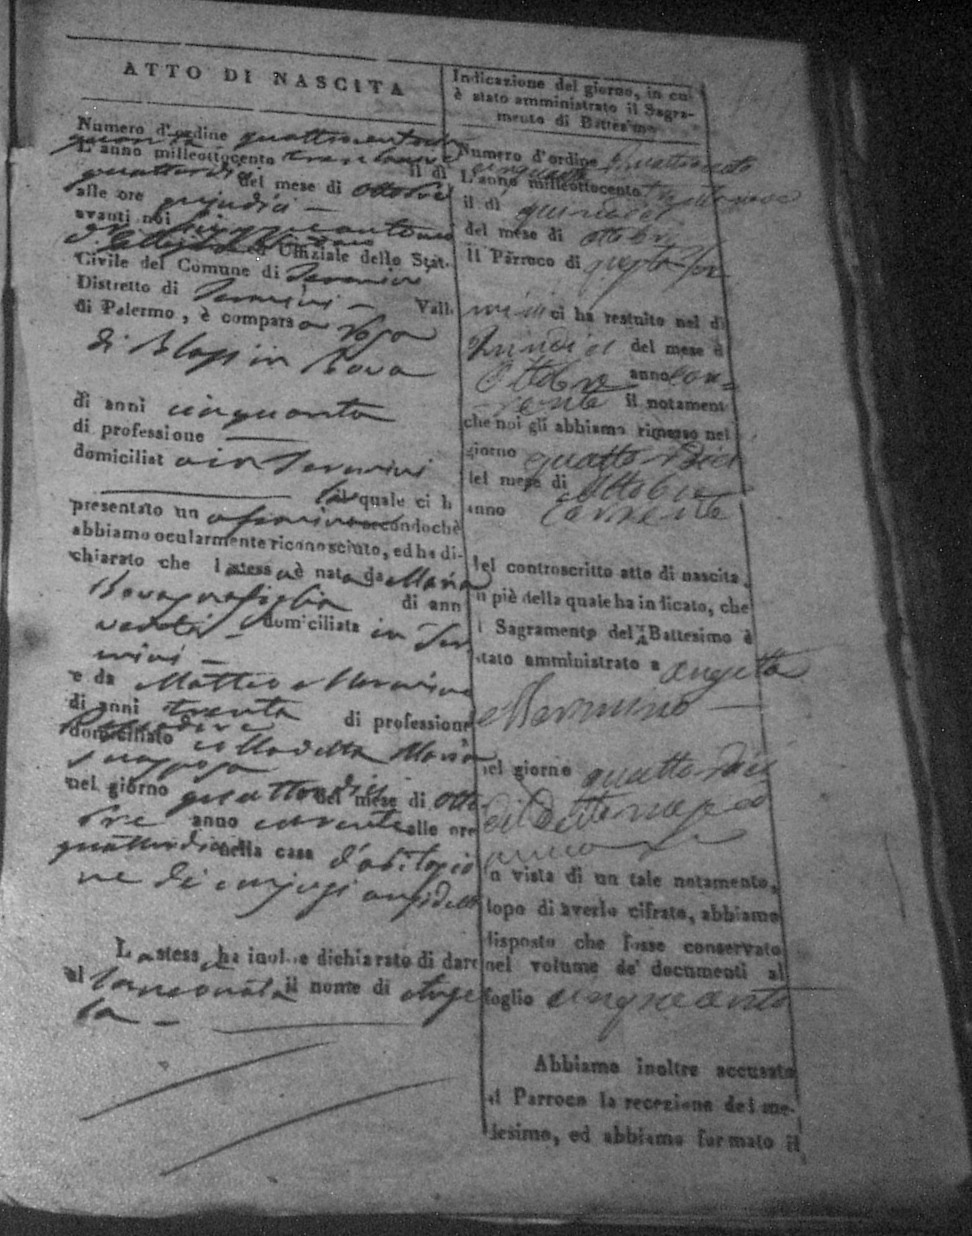 ATTO DI NASCITA
Numero d'ordine quattrocento
quanta
L'anno milleottocento trentanove il dì
quattordici del mese di Ottobre
alle ore
avanti noi
ed Uffiziale dello Stat.
Civile del Comune di Termini
Distretto di Termini — Vall.
di Palermo, è comparsa Rosa
di Blasi in Bova
di anni cinquanta
di professione ———
domiciliat a in Termini
la quale ci h
presentato un secondochè
abbiamo ocularmente riconosciuto, ed ha di-
chiarato che l a stess a è nata da Maria
Bova figlia di ann
domiciliata in Ter
mini —
e da Matteo Mormino
di anni trenta di professione
domiciliato colla detta Maria
sua sposa
nel giorno quattordici del mese di Otto
bre anno corrente alle ore
quattordici nella casa d'abitazio
ne di conjugi anzidetti
L a stess a ha inoltre dichiarato di dare
al la neonata il nome di Ange
la —
Indicazione del giorno, in cui
è stato amministrato il Sagra-
mento di Battesimo
Numero d'ordine Quattrocento
cinquanta
L'anno milleottocento trentanove
il dì quindici
del mese di Ottobre
Il Parroco di questa Ter
mini ci ha restuito nel dì
Quindici del mese d
Ottobre anno cor-
rente il notament
che noi gli abbiamo rimesso nel
giorno quattordici
del mese di Ottobre
anno Corrente
del controscritto atto di nascita,
n piè della quale ha indicato, che
l Sagramento del Battesimo è
stato amministrato a Angela
Mormino —
nel giorno quattordici
di detto mese ed
anno
n vista di un tale notamento,
dopo di averlo cifrato, abbiamo
disposto che fosse conservato
nel volume de' documenti al
foglio cinquanta
Abbiamo inoltre accusato
al Parroco la recezione del me-
desimo, ed abbiamo formato il